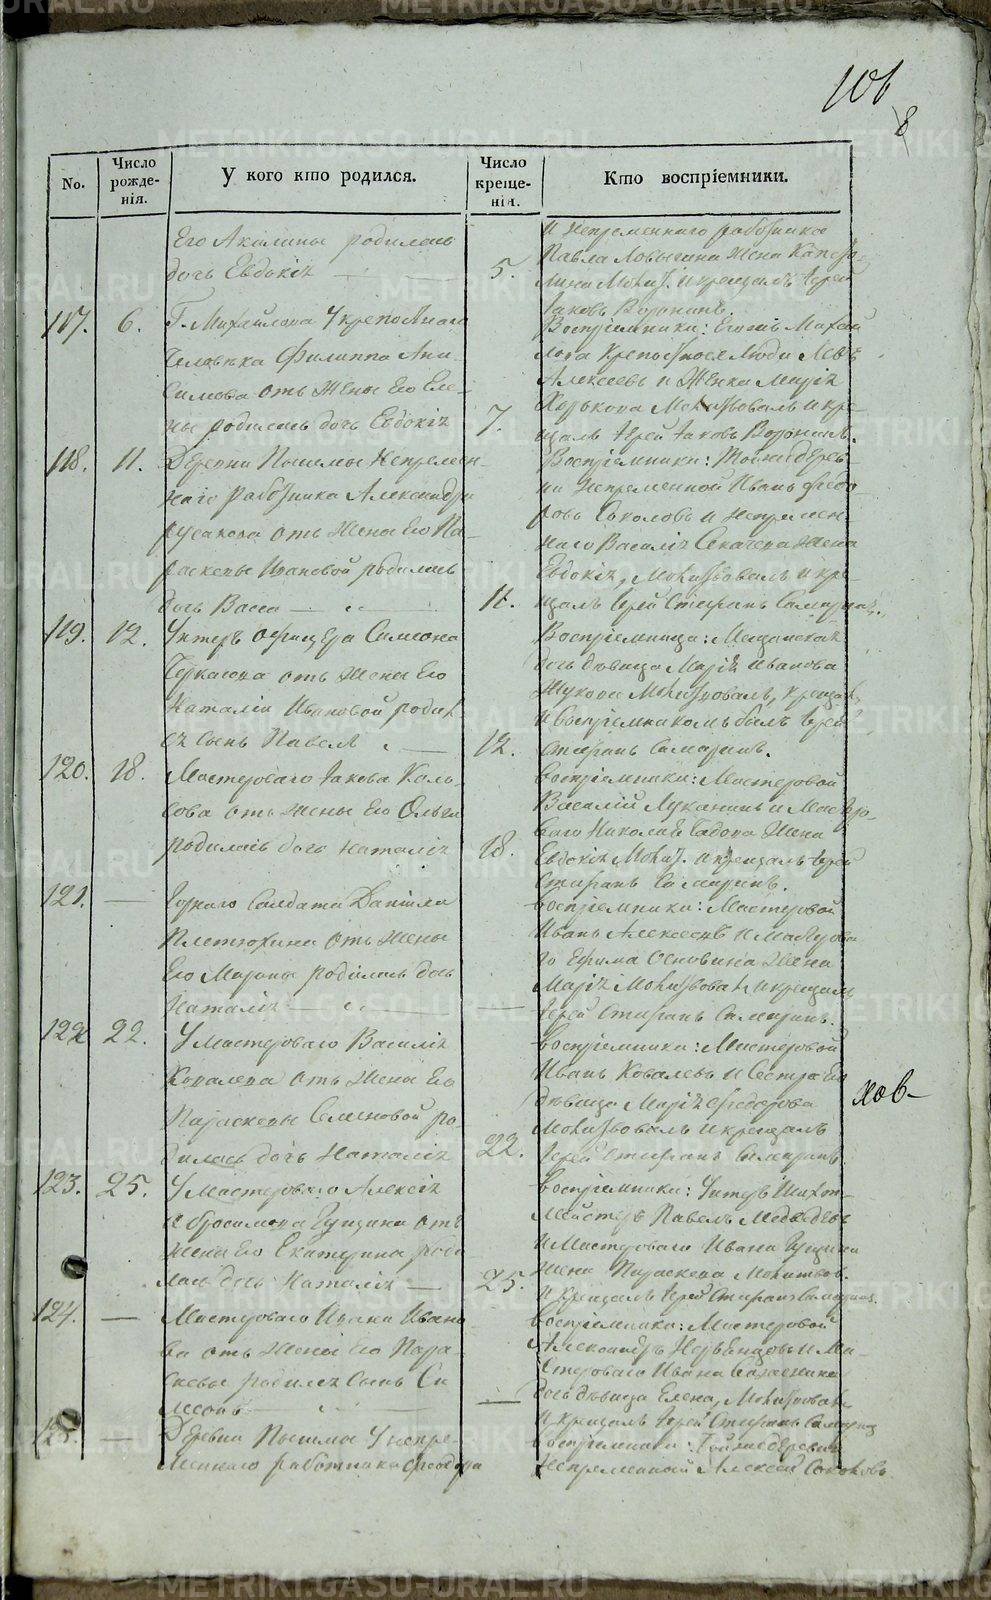 106
8
No.
Число рожде-нія.
У кого кто родился.
Число креще-нія.
Кто воспріемники.
Его Акилины родилась
дочь Евдокія
и непременнаго работника
Павла жена
5.
Молит. и крещалъ Іерей
Іаковъ Воронинъ.
117. 6.
Г. Михайлова у крепостнаго
человѣка Филиппа Ани-
симова отъ жены его Еле-
ны родилась дочь Евдокія
Воспріемники: Михай
лова крепостное люди
Алексѣевъ и Женка Марія
7.
Молитвовалъ и кре-
щалъ Іерей Іаковъ Воронинъ.
118. 11.
Деревни Пышмы непремен-
наго работника Александра
Русакова отъ жены его Па-
раскевы Ивановой родилась
дочь Васса
Воспріемники: Той же дерев-
ни непременной Иванъ Федо-
ровъ Соколовъ и непремен-
наго Василія жена
Евдокія, Молитвовалъ и кре-
11.
щалъ Іерей Стефанъ Самаринъ.
119. 12.
Унтеръ офицера Симеона
Черкасова отъ жены его
Наталіи Ивановой родил
ся сынъ Павелъ
Воспріемница: Мещанская
дочь дѣвица Марія Иванова
Жукова Молитвовалъ, крещал,
и воспріемникомъ былъ Іерей
12.
Стефанъ Самаринъ.
120. 18.
Мастероваго Іакова Коль-
цова отъ жены его Ольги
родилась дочь Наталія
Воспріемники: Мастеровой
Василій Луканинъ и Мастеро-
ваго Николая жена
18.
Евдокія Молит. и крещалъ Іерей
Стефанъ Самаринъ.
121. —
Горнаго Солдата Даніила
Плетюхина отъ жены
его Марѳы родилась дочь
Наталія
Воспріемники: Мастеровой
Иванъ Алексѣевъ и Мастерова
го Ефима Основина жена
Марія Молитвовал и крещалъ
—
Іерей Стефанъ Самаринъ.
122 22.
У Мастероваго Василія
Ковалева отъ жены его
Параскевы Семеновой ро-
дилась дочь Наталія
Воспріемники: Мастеровой
Иванъ Ковалевъ и Сестра его
дѣвица Марія Федорова
хов-
Молитвовалъ и крещалъ
22.
Іерей Стефанъ Самаринъ
123. 25.
У Мастероваго Алексѣя
Абросимова Гущина отъ
жены его Екатерины роди
лась дочь Наталія
Воспріемники: Унтеръ Шихт-
мейстеръ Павелъ Медведевъ
и Мастероваго Ивана Гущина
жена Параскева Молитвов.
25.
и крещалъ Іерей Стефанъ Самаринъ.
124. —
Мастероваго Ивана Ивано
ва отъ жены его Пара-
скевы родился сынъ Си
меонъ
Воспріемники: Мастеровой
Александръ и Ма-
стероваго Ивана
—
дочь дѣвица Елена, Молитвовал
и крещалъ Іерей Стефанъ Самаринъ
—
Деревни Пышмы У непре-
меннаго работника Феодора
Воспріемники: Той же деревни
Непременной Алексѣй Соколовъ